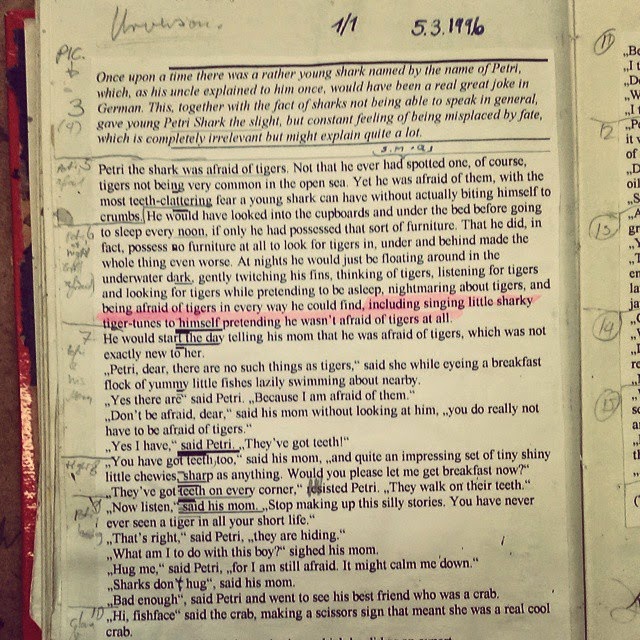 1/1 5.3.1996
PIC.
3
Once upon a time there was a rather young shark named by the name of Petri,
which, as his uncle explained to him once, would have been a real great joke in
German. This, together with the fact of sharks not being able to speak in general,
gave young Petri Shark the slight, but constant feeling of being misplaced by fate,
which is completely irrelevant but might explain quite a lot.
5
Petri the shark was afraid of tigers. Not that he ever had spotted one, of course,
tigers not being very common in the open sea. Yet he was afraid of them, with the
most teeth-clattering fear a young shark can have without actually biting himself to
crumbs. He would have looked into the cupboards and under the bed before going
6
to sleep every noon, if only he had possessed that sort of furniture. That he did, in
fact, possess no furniture at all to look for tigers in, under and behind made the
whole thing even worse. At nights he would just be floating around in the
underwater dark, gently twitching his fins, thinking of tigers, listening for tigers
and looking for tigers while pretending to be asleep, nightmaring about tigers, and
being afraid of tigers in every way he could find, including singing little sharky
tiger-tunes to himself pretending he wasn't afraid of tigers at all.
7
He would start the day telling his mom that he was afraid of tigers, which was not
exactly new to her.
„Petri, dear, there are no such things as tigers,“ said she while eyeing a breakfast
flock of yummy little fishes lazily swimming about nearby.
„Yes there are“ said Petri. „Because I am afraid of them.“
„Don't be afraid, dear,“ said his mom without looking at him, „you do really not
have to be afraid of tigers.“
„Yes I have,“ said Petri. „They've got teeth!“
„You have got teeth too,“ said his mom, „and quite an impressing set of tiny shiny
little chewies, sharp as anything. Would you please let me get breakfast now?“
„They've got teeth on every corner,“ resisted Petri. „They walk on their teeth.“
„Now listen,“ said his mom. „Stop making up this silly stories. You have never
ever seen a tiger in all your short life.“
„That's right,“ said Petri, „they are hiding.“
„What am I to do with this boy?“ sighed his mom.
„Hug me,“ said Petri, „for I am still afraid. It might calm me down.“
„Sharks don't hug“, said his mom.
„Bad enough“, said Petri and went to see his best friend who was a crab.
„Hi, fishface“ said the crab, making a scissors sign that meant she was a real cool
crab.
11
12
13
14
15